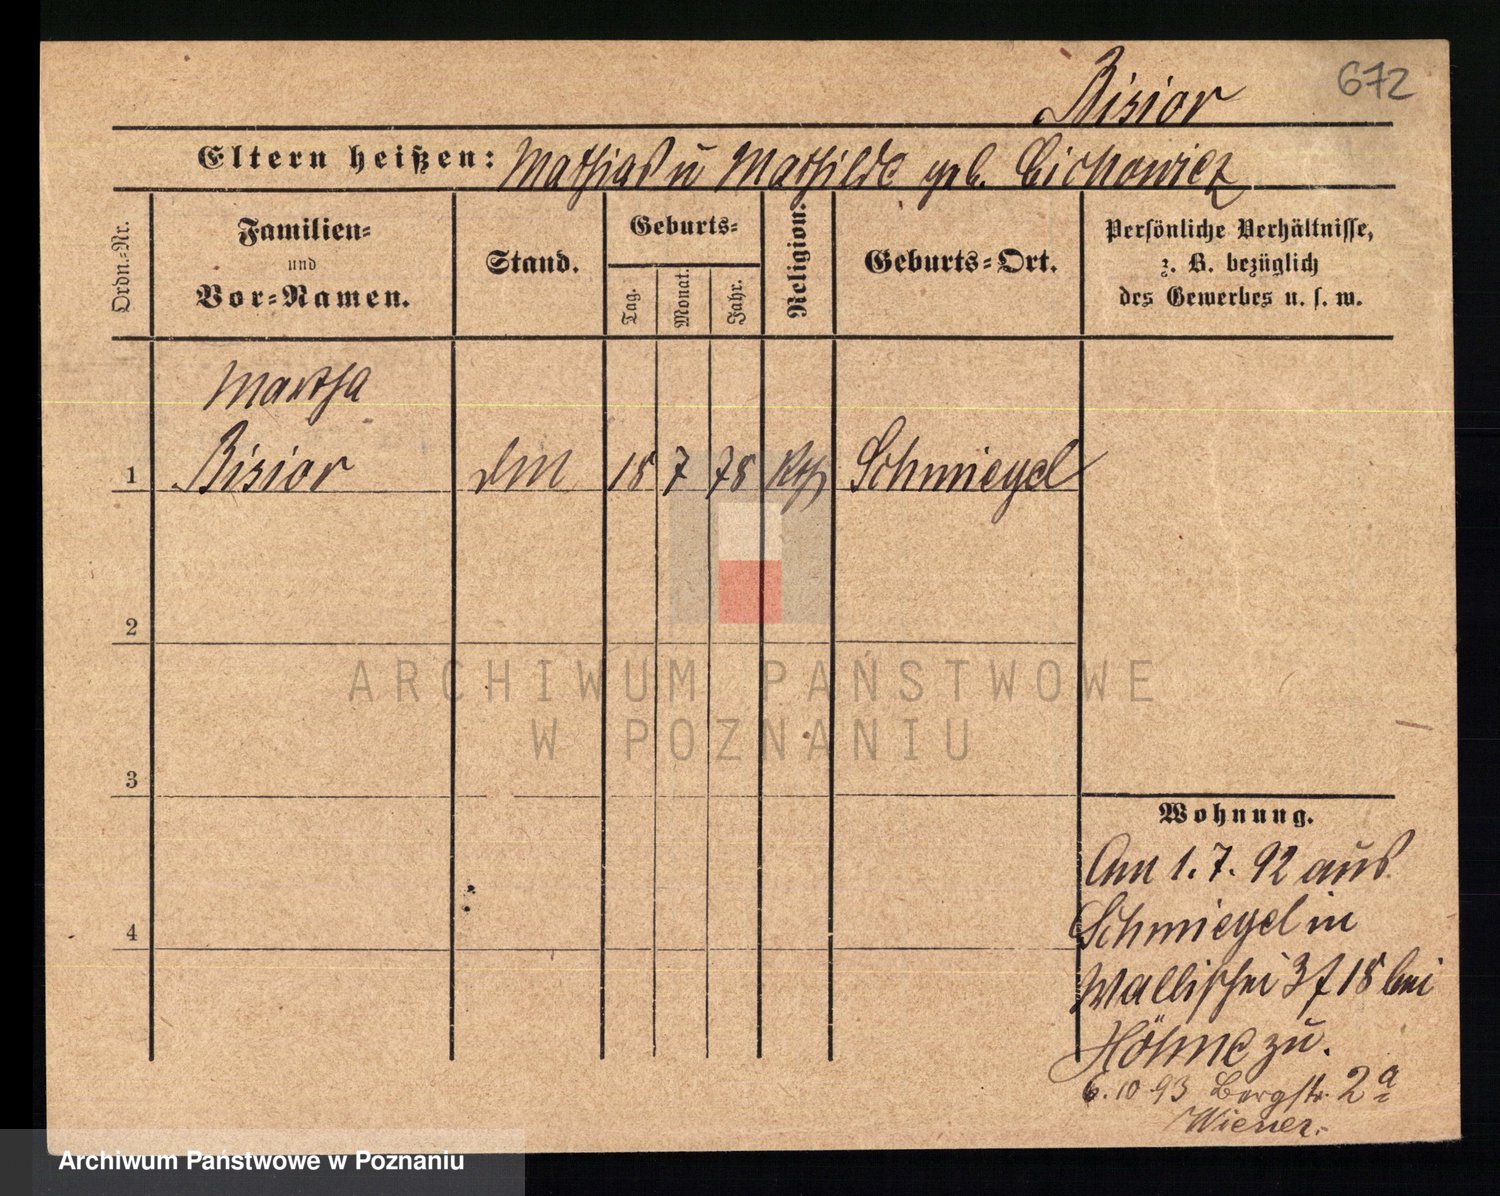 672
Bisior
Eltern heißen: Mathias u Mathilde geb. Cichowicz
Ordn.-Nr.
Familien-
und
Vor-Namen.
Stand.
Geburts-
Tag.
Monat.
Jahr.
Religion.
Geburts-Ort.
Persönliche Verhältnisse,
z. B. bezüglich
des Gewerbes u. s. w.
Martha
1 Bisior 18 7 78 kth Schmiegel
2
3
4
ARCHIWUM PAŃSTWOWE
W POZNANIU
Wohnung.
Am 1.7.92 aus
Schmiegel in
Wallischei 3 / 18 bei
Höhne zu.
6.10.93 Bergstr. 2a
Wiener.
Archiwum Państwowe w Poznaniu